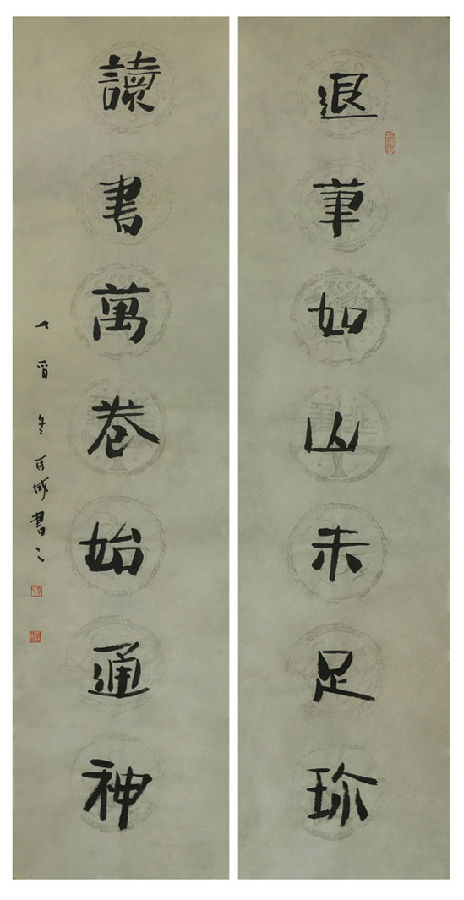 退筆如山未足珍
讀書萬卷始通神
丁酉冬百成書